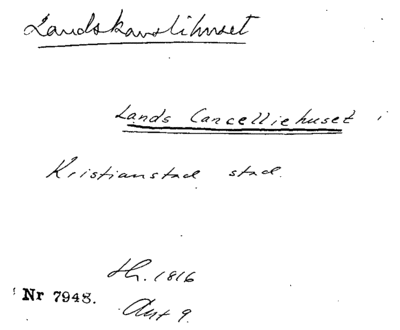 Landskanslihuset
Lands Cancelliehuset i
Kristianstad stad.
1816
Nr 7948.
9.